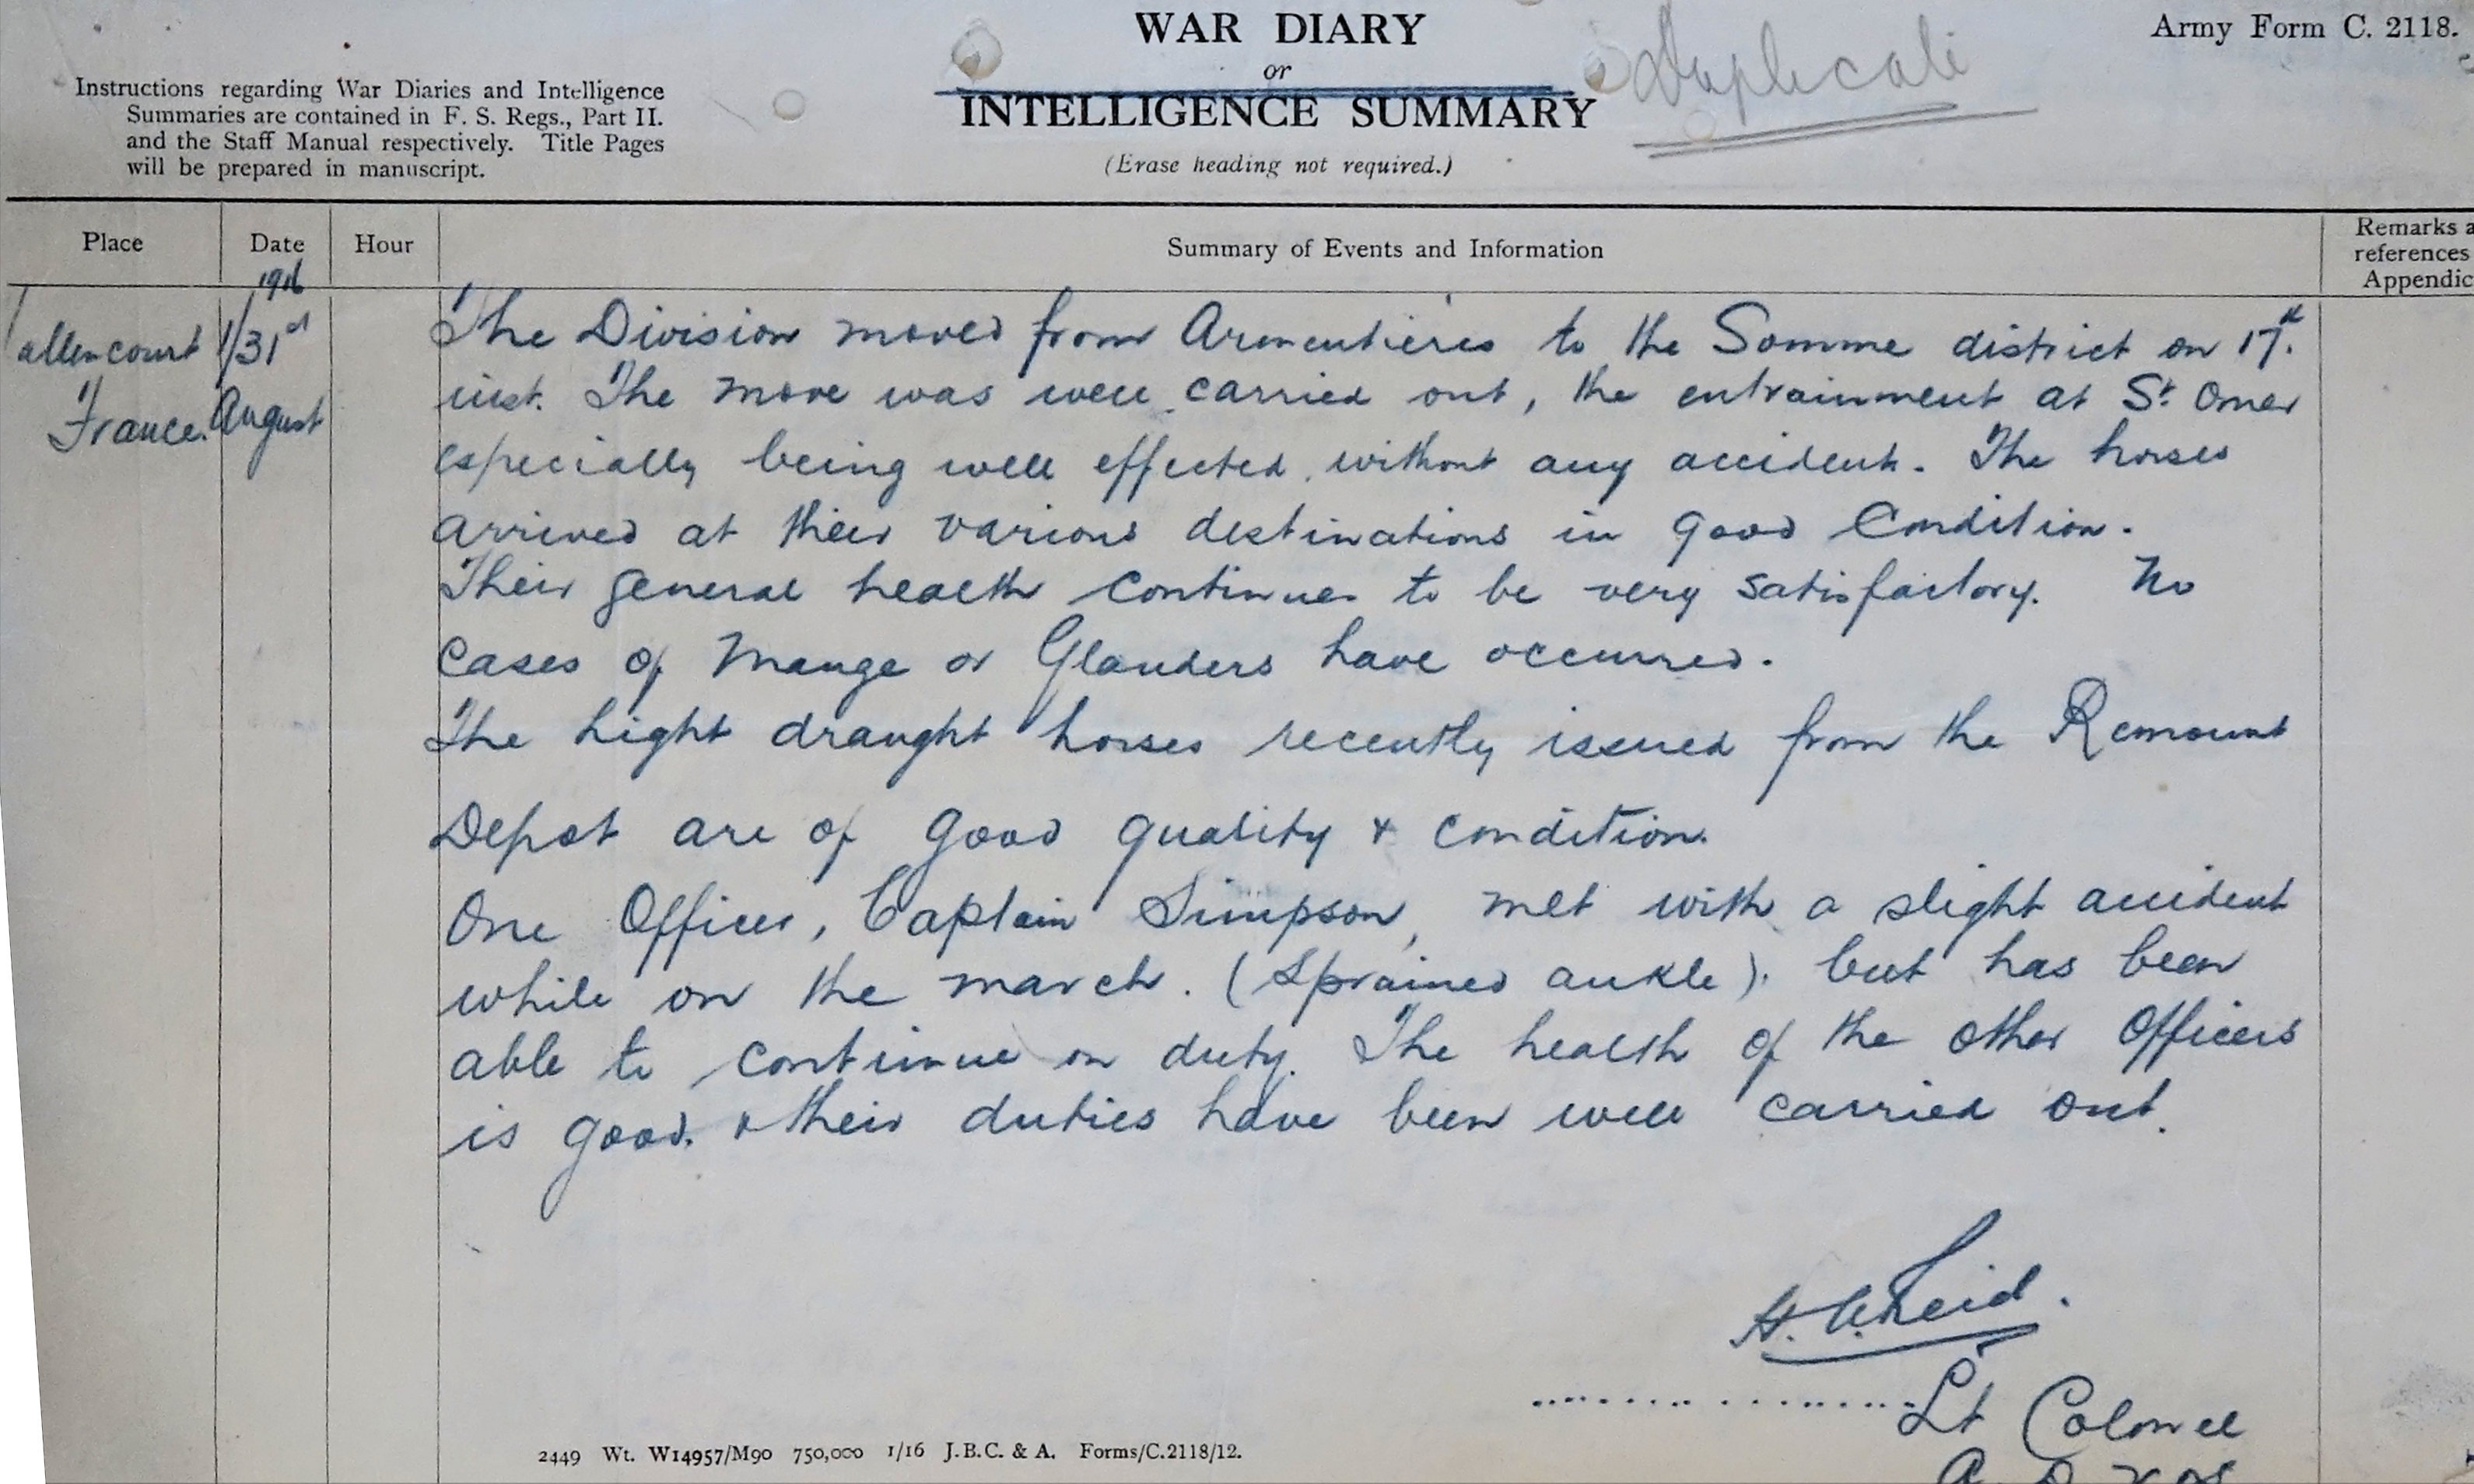 WAR DIARY
or
INTELLIGENCE SUMMARY
(Erase heading not required.)
Duplicate
Army Form C. 2118.
Instructions regarding War Diaries and Intelligence
Summaries are contained in F. S. Regs., Part II.
and the Staff Manual respectively. Title Pages
will be prepared in manuscript.
Place Date Hour Summary of Events and Information Remarks a
references
Appendic
1916
allencourt 1/31st
France. August
The Division moved from Armentières to the Somme district on 17th.
inst. The move was well carried out, the entrainment at St. Omer
especially being well effected without any accident. The horses
arrived at thier various destinations in good Condition.
Their general health continues to be very satisfactory. No
cases of Mange or Glanders have occurred.
The Light draught horses recently issued from the Remount
Depot are of good quality & condition.
One Officer, Captain Simpson, met with a slight accident
while on the march. (Sprained ankle). but has been
able to continue on duty. The health of the other Officers
is good. & their duties have been well carried out.
H. Reid.
Lt Colonel
2449 Wt. W14957/M90 750,000 1/16 J.B.C. & A. Forms/C.2118/12.